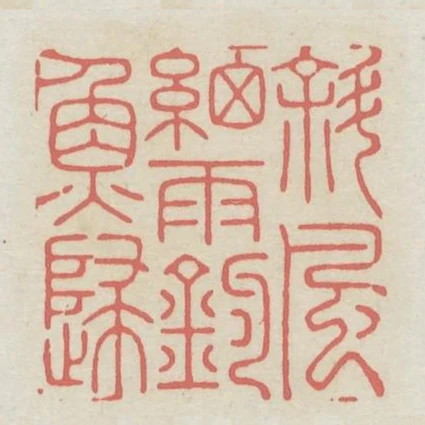 斜風
細雨釣
魚歸